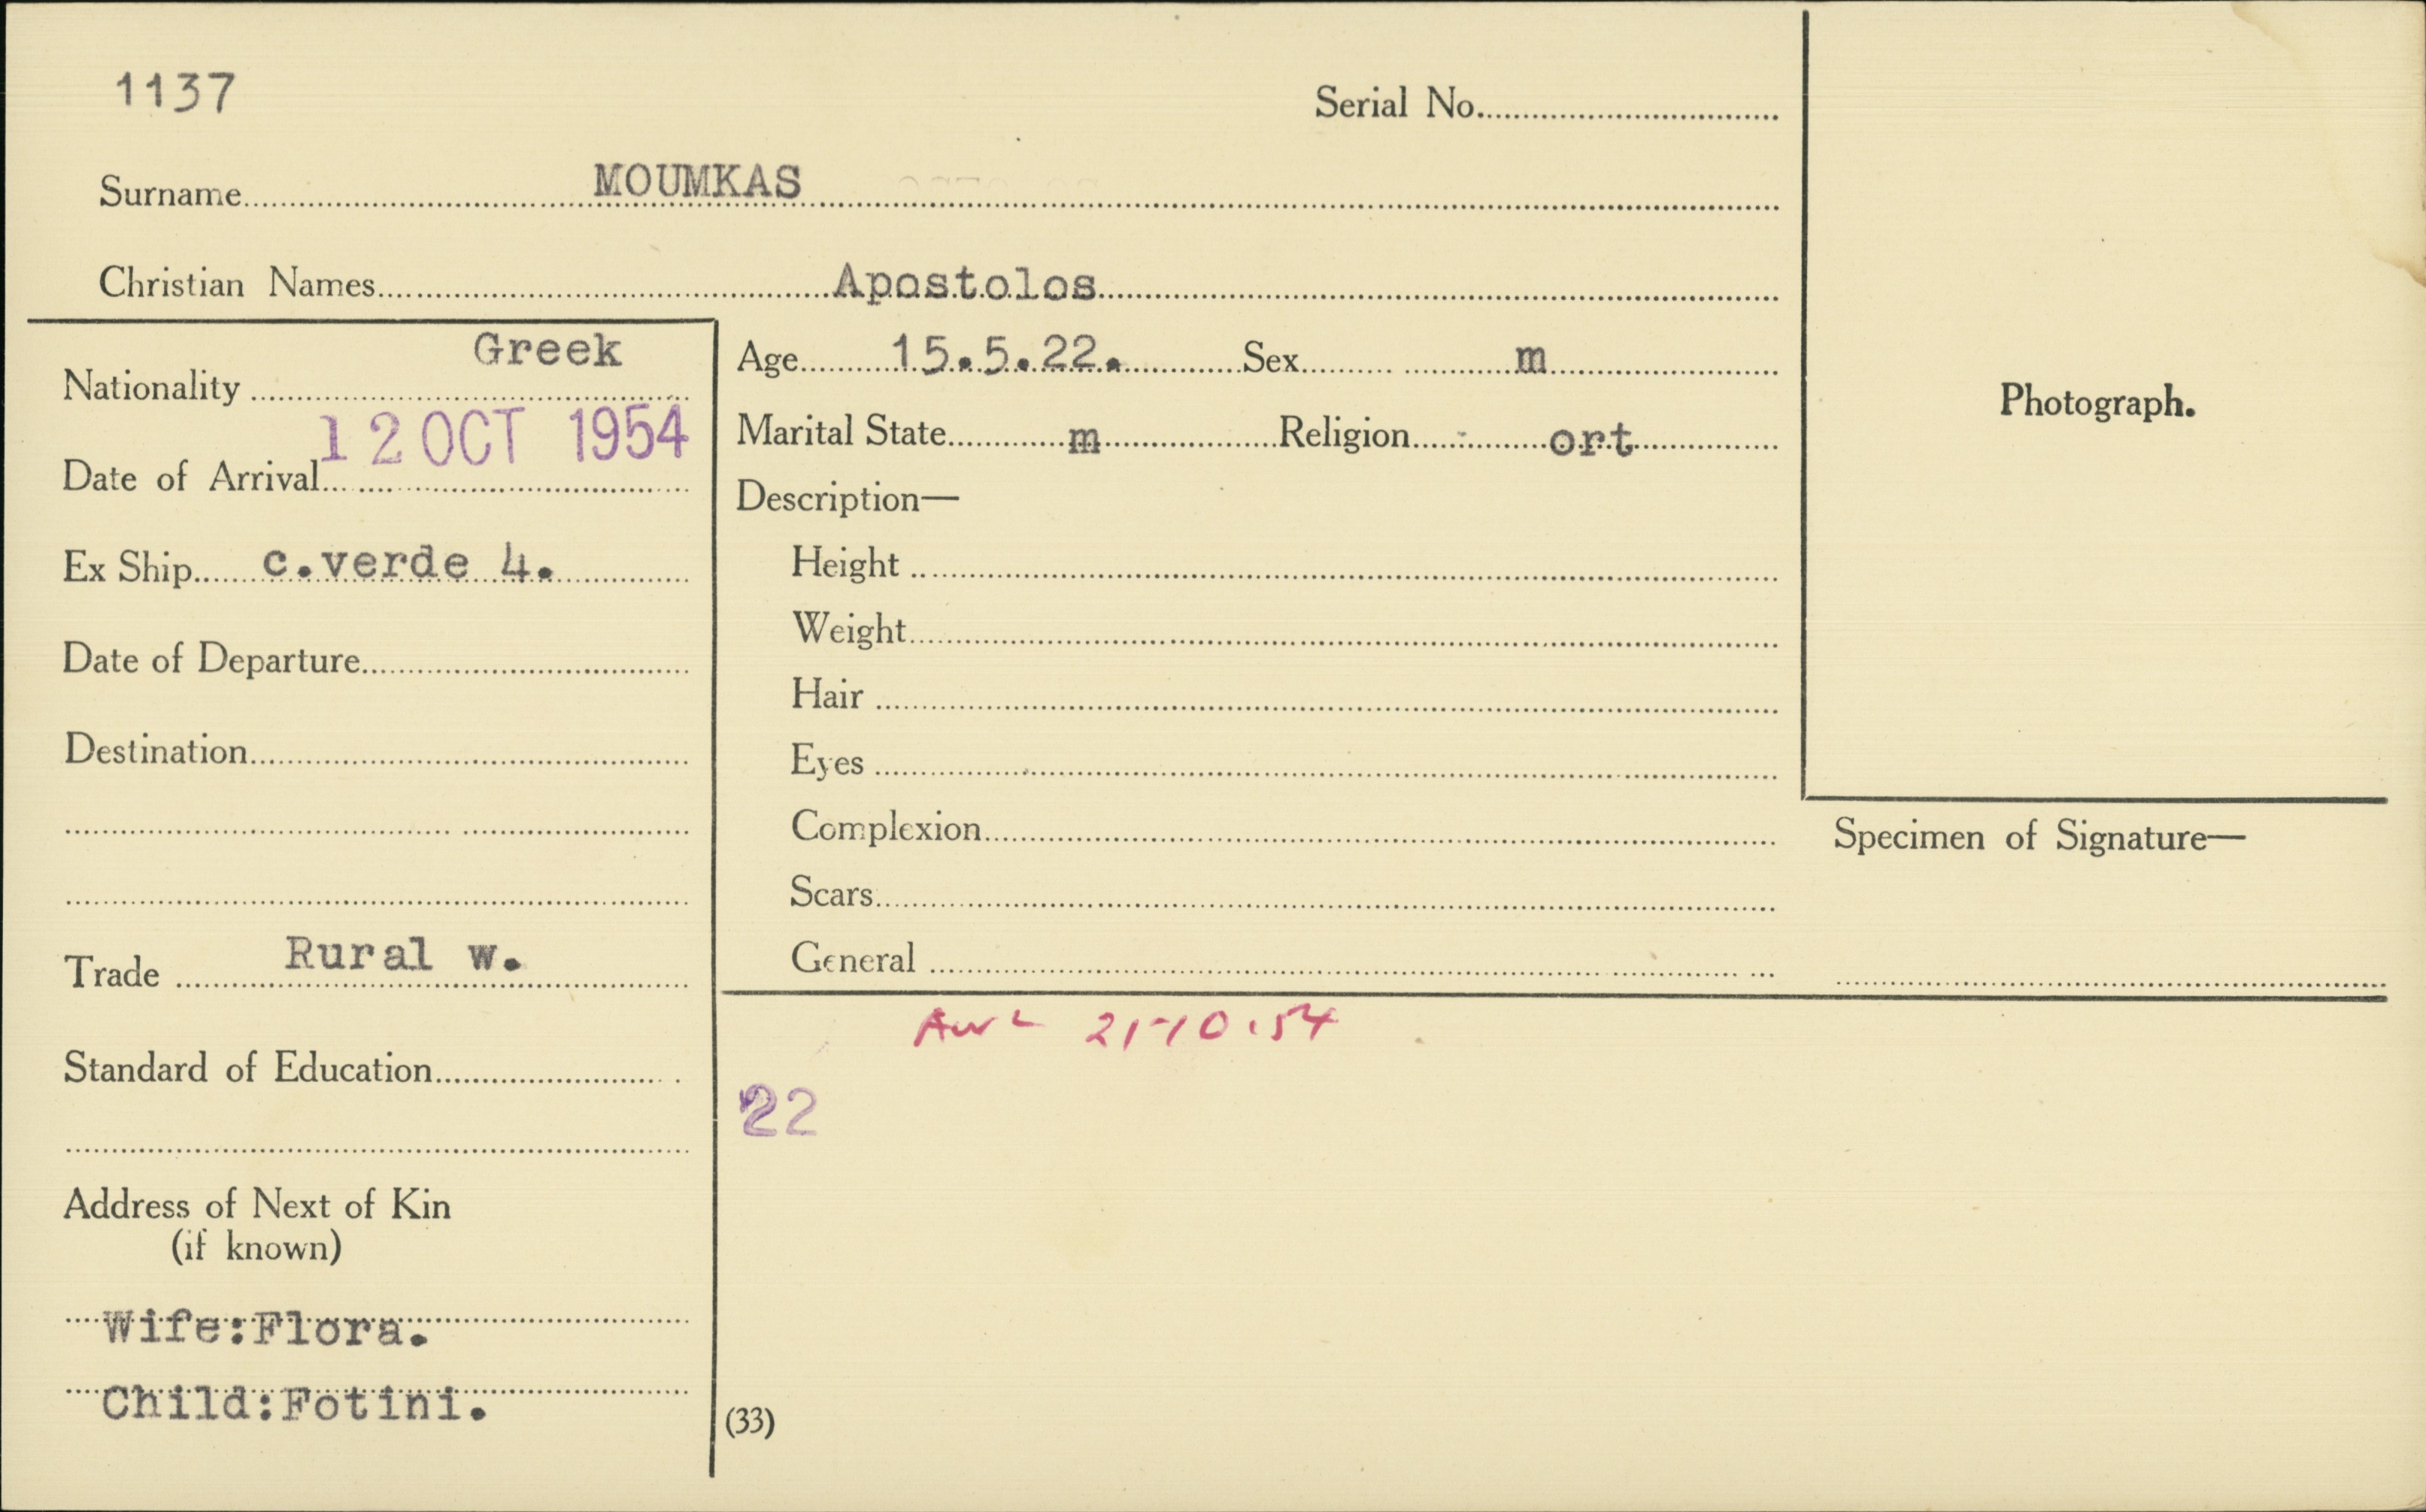 1137
Serial No.
Surname MOUMKAS
Christian Names Apostolos
Nationality Greek
Date of Arrival 12 OCT 1954
Ex Ship c.verde 4.
Date of Departure
Destination
Trade Rural w.
Standard of Education
Address of Next of Kin
(if known)
Wife:Flora.
Child:Fotini.
Age 15.5.22. Sex m
Marital State m Religion ort
Description—
Height
Weight
Hair
Eyes
Complexion
Scars
General
21-10.54
22
(33)
Photograph.
Specimen of Signature—